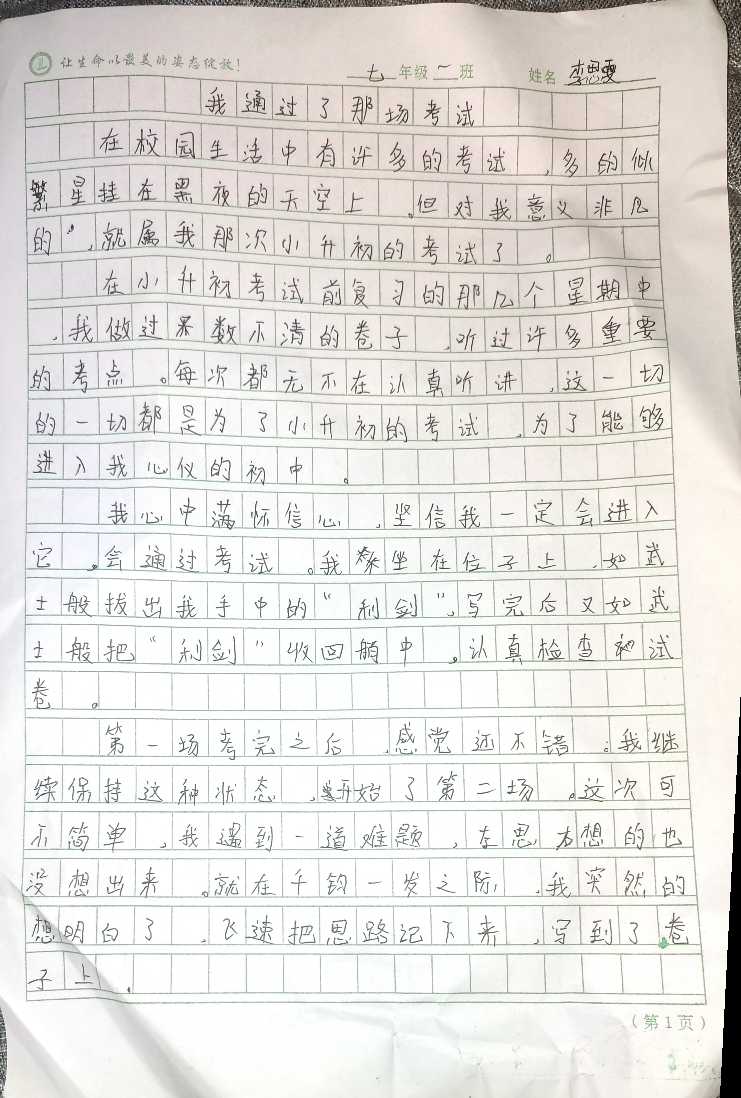 让生命以最美的姿态绽放! 七年级一班 姓名 李思雯
我通过了那场考试
在校园生活中有许多的考试,多的似
繁星挂在黑夜的天空上。但对我意义非凡
的",就属我那次小升初的考试了。
在小升初考试前复习的那几个星期中
,我做过累数不清的卷子,听过许多重要
的考点。每次都无不在认真听讲,这一切
的一切都是为了小升初的考试,为了能够
进入我心仪的初中。
我心中满怀信心,坚信我一定会进入
它。会通过考试。我坐在位子上,如武
士般拔出我手中的"利剑",写完后又如武
士般把"利剑"收回鞘中。认真检查初试
卷。
第一场考完之后,感觉还不错。我继
续保持这种状态,开始了第二场。这次可
不简单,我遇到一道难题,左思右想的也
没想出来。就在千钧一发之际,我突然的
想明白了,飞速把思路记下来,写到了卷
子上.
(第1页)